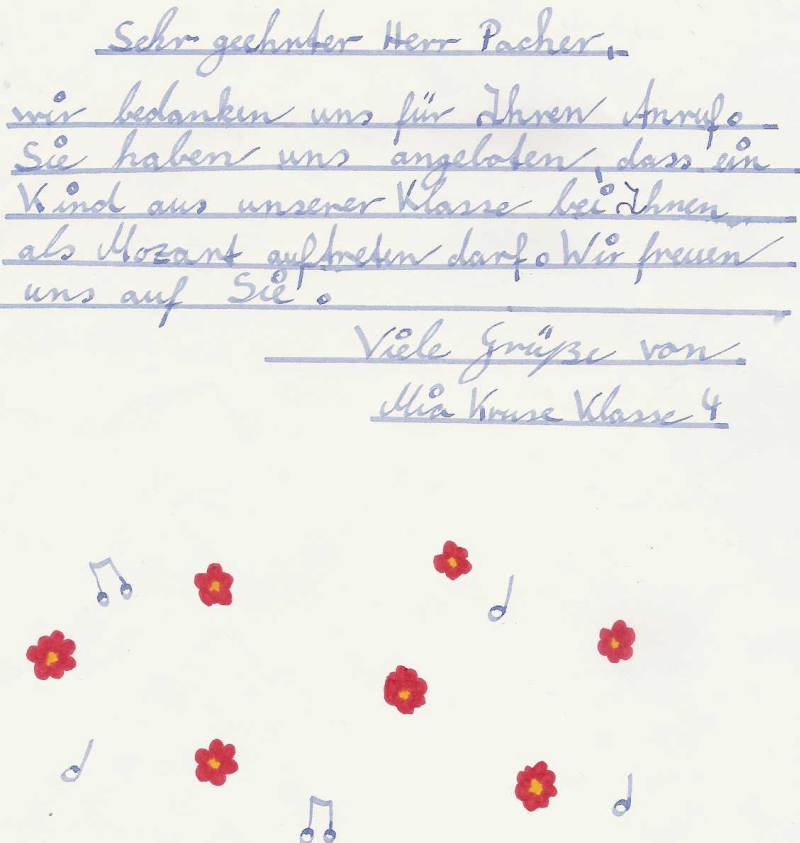 Sehr geehrter Herr Pacher,
wir bedanken uns für Ihren Anruf.
Sie haben uns angeboten, dass ein
Kind aus unserer Klasse bei Ihnen
als Mozart auftreten darf. Wir freuen
uns auf Sie.
Viele Grüße von
Mia Kruse Klasse 4